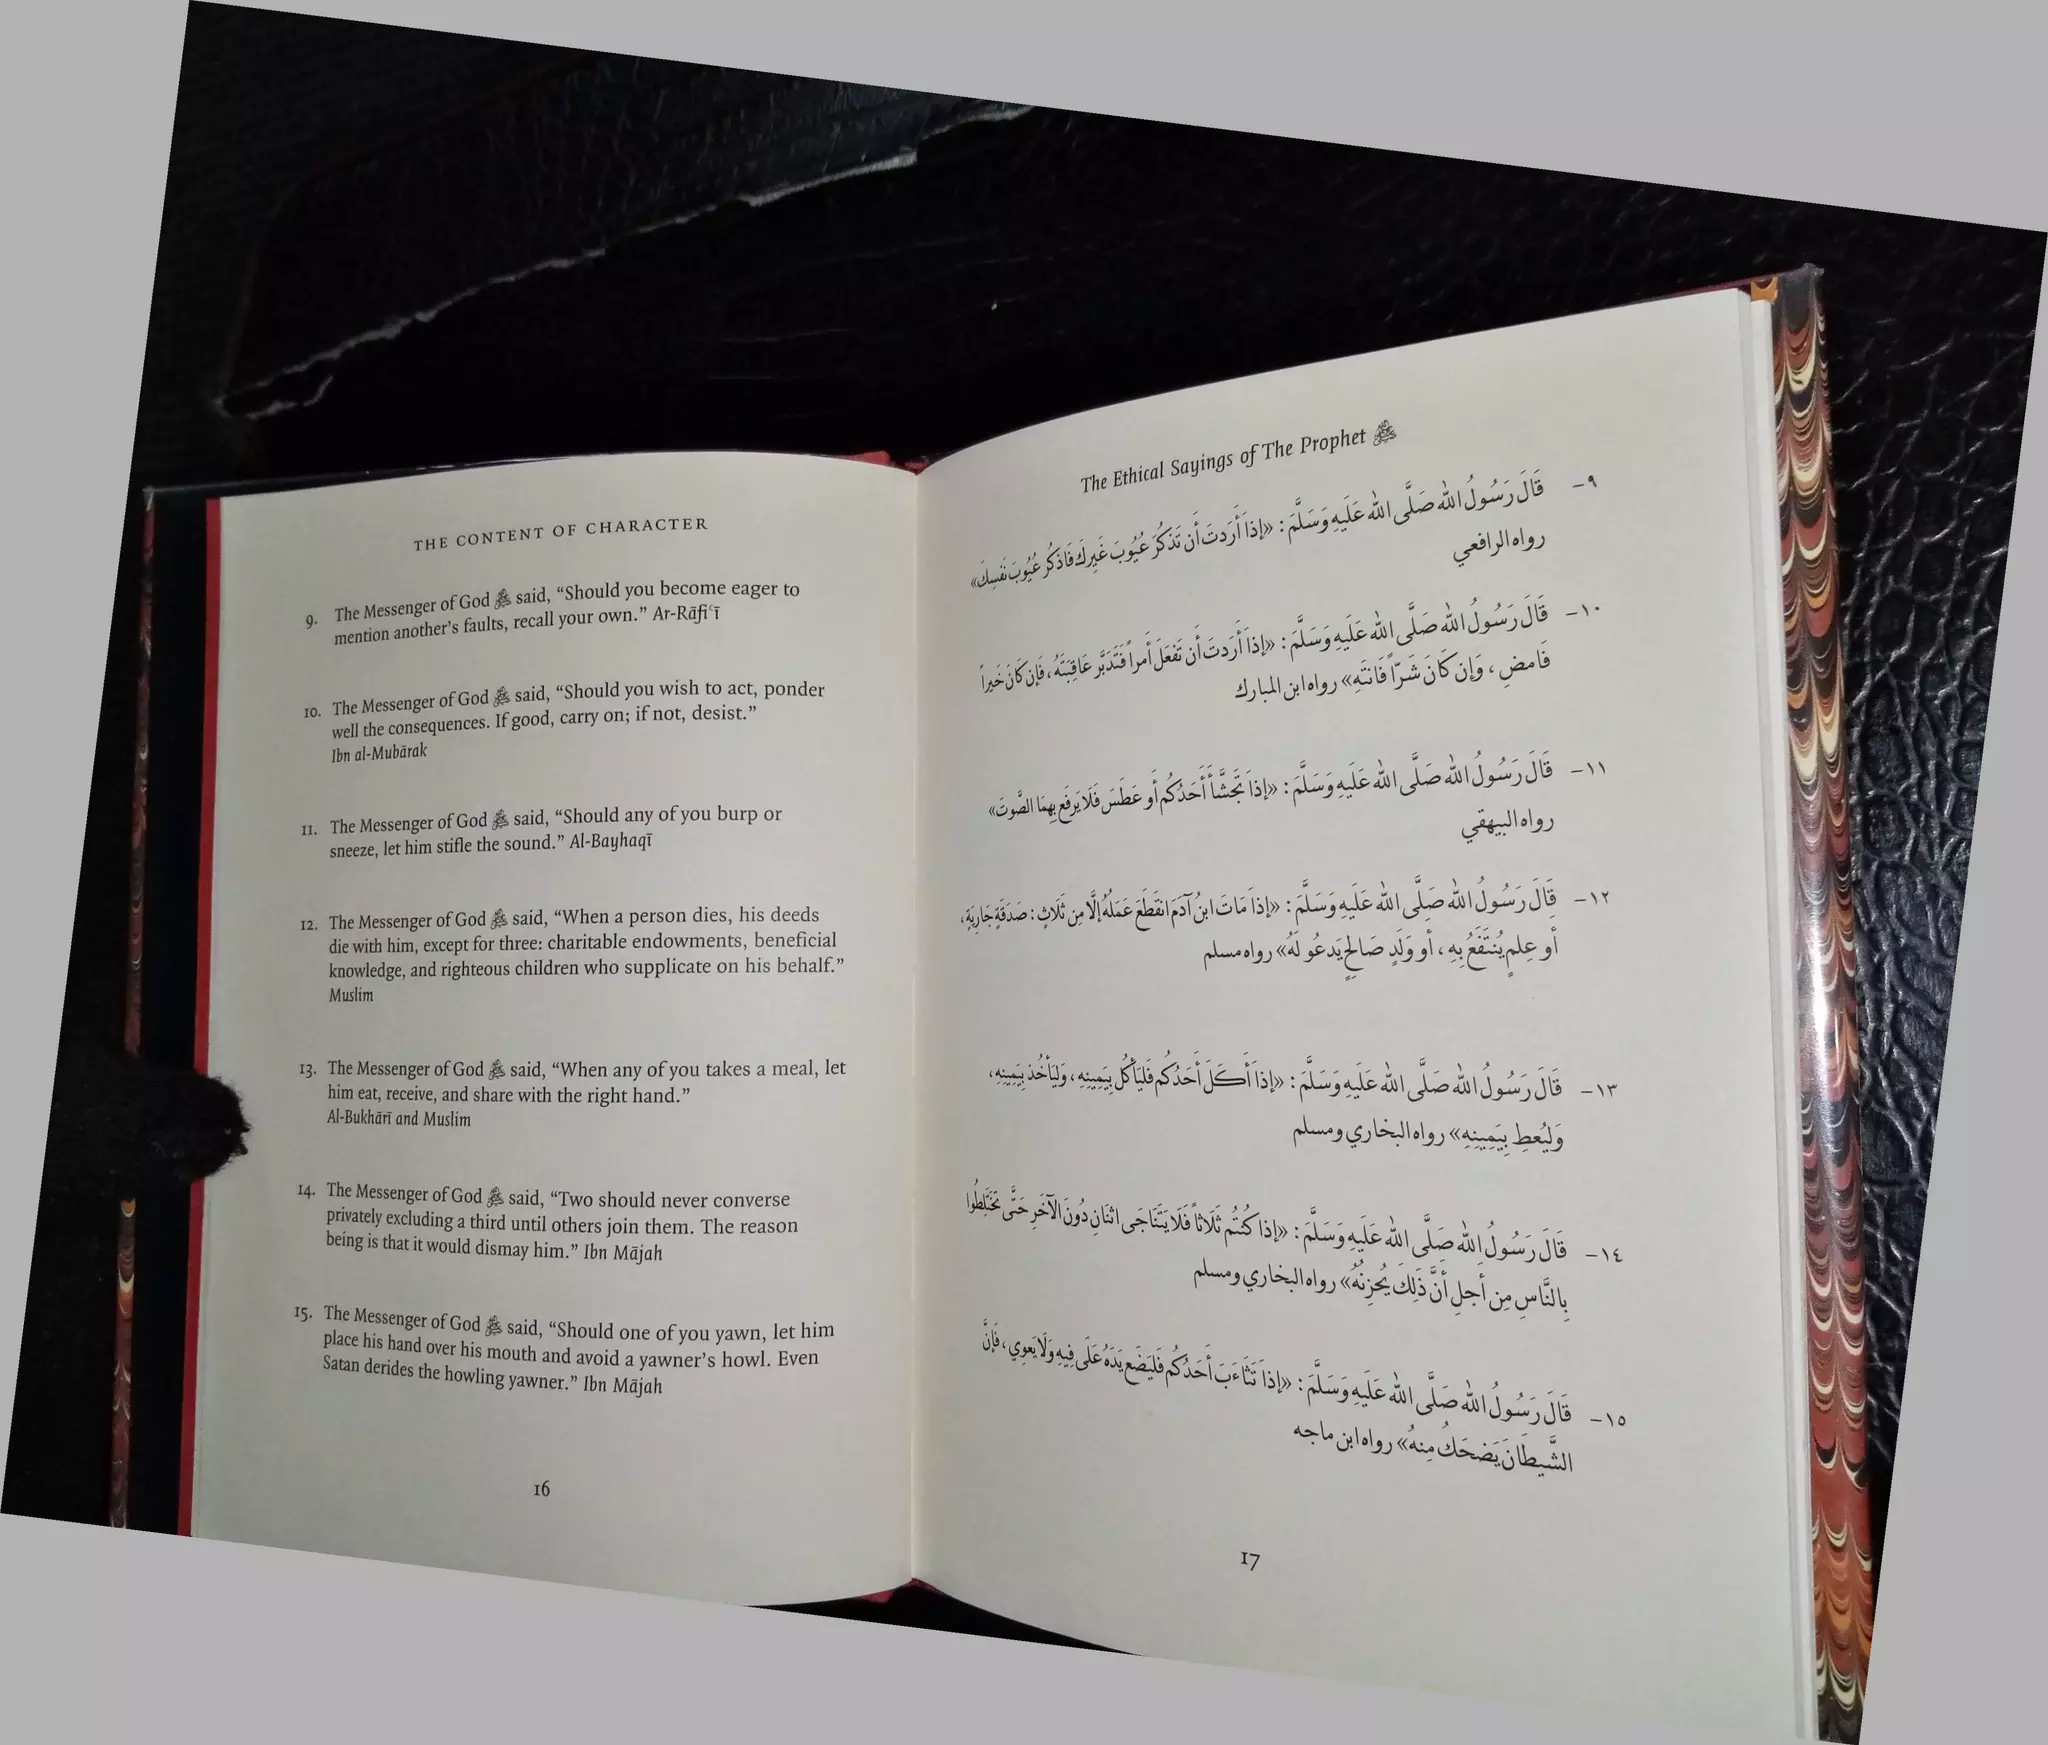 THE CONTENT OF CHARACTER
9. The Messenger of God ﷺ said, “Should you become eager to
mention another’s faults, recall your own.” Ar-Rāfiʿī
10. The Messenger of God ﷺ said, “Should you wish to act, ponder
well the consequences. If good, carry on; if not, desist.”
Ibn al-Mubārak
11. The Messenger of God ﷺ said, “Should any of you burp or
sneeze, let him stifle the sound.” Al-Bayhaqī
12. The Messenger of God ﷺ said, “When a person dies, his deeds
die with him, except for three: charitable endowments, beneficial
knowledge, and righteous children who supplicate on his behalf.”
Muslim
13. The Messenger of God ﷺ said, “When any of you takes a meal, let
him eat, receive, and share with the right hand.”
Al-Bukhārī and Muslim
14. The Messenger of God ﷺ said, “Two should never converse
privately excluding a third until others join them. The reason
being is that it would dismay him.” Ibn Mājah
15. The Messenger of God ﷺ said, “Should one of you yawn, let him
place his hand over his mouth and avoid a yawner’s howl. Even
Satan derides the howling yawner.” Ibn Mājah
16
The Ethical Sayings of The Prophet ﷺ
٩- قَالَ رَسُولُ اللّٰه صَلَّى اللّٰه عَلَيهِ وَسَلَّمَ: «إذَا أَرَدتَ أَن تَذكُرَ عُيُوبَ غَيرِكَ فَاذكُر عُيُوبَ نَفسِكَ»
رواه الرافعي
١٠- قَالَ رَسُولُ اللّٰه صَلَّى اللّٰه عَلَيهِ وَسَلَّمَ: «إذَا أَرَدتَ أَن تَفعَلَ أَمراً فَتَدَبَّر عَاقِبَتَهُ، فَإن كَانَ خَيراً
فَامضِ، وَإن كَانَ شَرّاً فَانتَهِ» رواه ابن المبارك
١١- قَالَ رَسُولُ اللّٰه صَلَّى اللّٰه عَلَيهِ وَسَلَّمَ: «إذَا تَجَشَّأَ أَحَدُكُم أَو عَطَسَ فَلَا يَرفَع بِهِمَا الصَّوتَ»
رواه البيهقي
١٢- قَالَ رَسُولُ اللّٰه صَلَّى اللّٰه عَلَيهِ وَسَلَّمَ: «إذَا مَاتَ ابنُ آدَمَ انقَطَعَ عَمَلُهُ إلَّا مِن ثَلَاثٍ: صَدَقَةٍ جَارِيَةٍ،
أو عِلمٍ يُنتَفَعُ بِهِ، أو وَلَدٍ صَالِحٍ يَدعُو لَهُ» رواه مسلم
١٣- قَالَ رَسُولُ اللّٰه صَلَّى اللّٰه عَلَيهِ وَسَلَّمَ: «إذَا أَكَلَ أَحَدُكُم فَليَأكُل بِيَمِينِهِ، وَليَأخُذ بِيَمِينِهِ،
وَليُعطِ بِيَمِينِهِ» رواه البخاري ومسلم
١٤- قَالَ رَسُولُ اللّٰه صَلَّى اللّٰه عَلَيهِ وَسَلَّمَ: «إذا كُنتُم ثَلَاثاً فَلَا يَتَنَاجَى اثنَانِ دُونَ الآخَرِ حَتَّى تَختَلِطُوا
بِالنَّاسِ مِن أجلِ أنَّ ذَلِكَ يُحزِنُهُ» رواه البخاري ومسلم
١٥- قَالَ رَسُولُ اللّٰه صَلَّى اللّٰه عَلَيهِ وَسَلَّمَ: «إذَا تَثَاءَبَ أَحَدُكُم فَليَضَع يَدَهُ عَلَى فِيهِ وَلَا يَعوِي، فَإنَّ
الشَّيطَانَ يَضحَكُ مِنهُ» رواه ابن ماجه
17